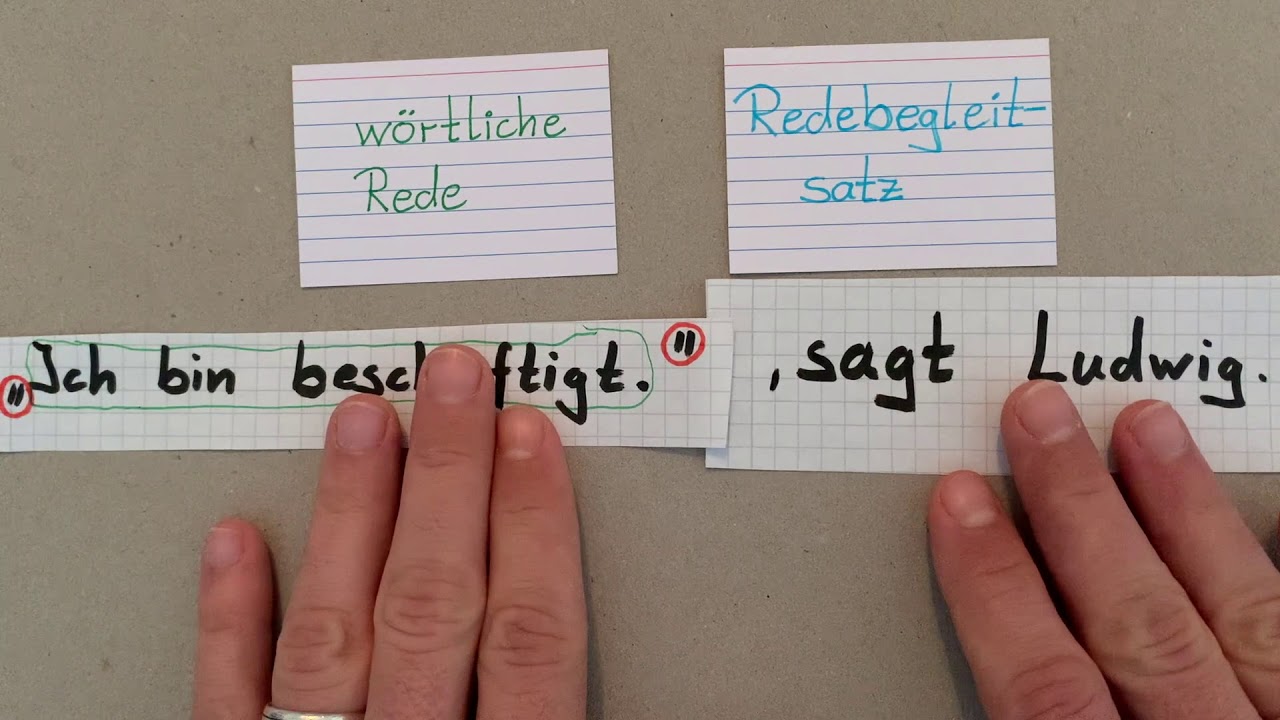 wörtliche
Rede
Redebegleit-
satz
„Ich bin beschäftigt." , sagt Ludwig.